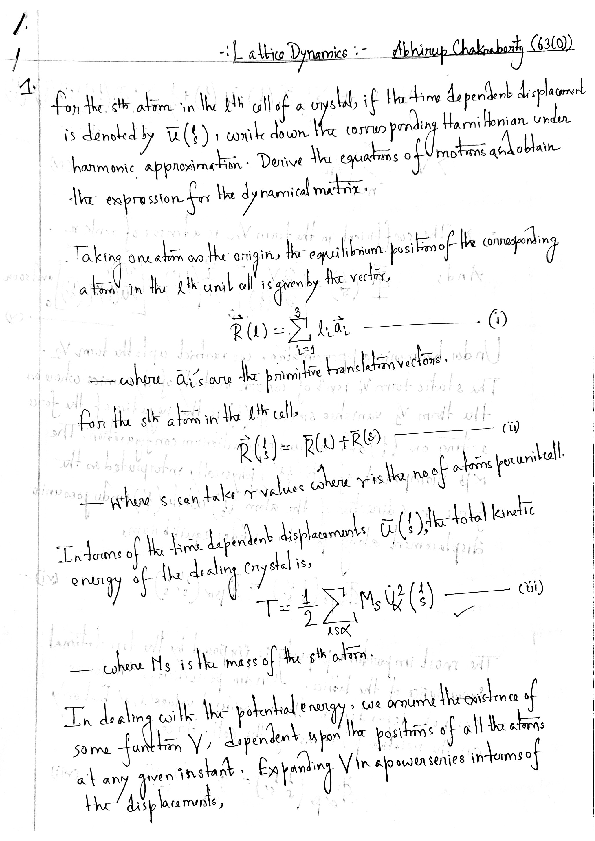 1.
-: Lattice Dynamics :- Abhirup Chakraborty (63(O))
1. For the sth atom in the lth cell of a crystal, if the time dependent displacement
is denoted by ū(l s), write down the corresponding Hamiltonian under
harmonic approximation. Derive the equations of motions and obtain
the expression for the dynamical matrix.
Taking one atom as the origin, the equilibrium position of the corresponding
atom in the lth unit cell is given by the vector,
R⃗(l) = Σ_{i=1}^{3} l_i a⃗_i ——— (i)
— where ā_i's are the primitive translation vectors.
For the sth atom in the lth cell,
R⃗(l s) = R̄(l) + R̄(s) ——— (ii)
— where s can take r values where r is the no of atoms per unit cell.
In terms of the time dependent displacements ū(l s), the total kinetic
energy of the crystal is,
T = 1/2 Σ_{lsα} M_s u̇²_α(l s) ——— (iii) ✓
— where Ms is the mass of the sth atom.
In dealing with the potential energy, we assume the existence of
some function V, dependent upon the positions of all the atoms
at any given instant. Expanding V in a power series in terms of
the displacements,